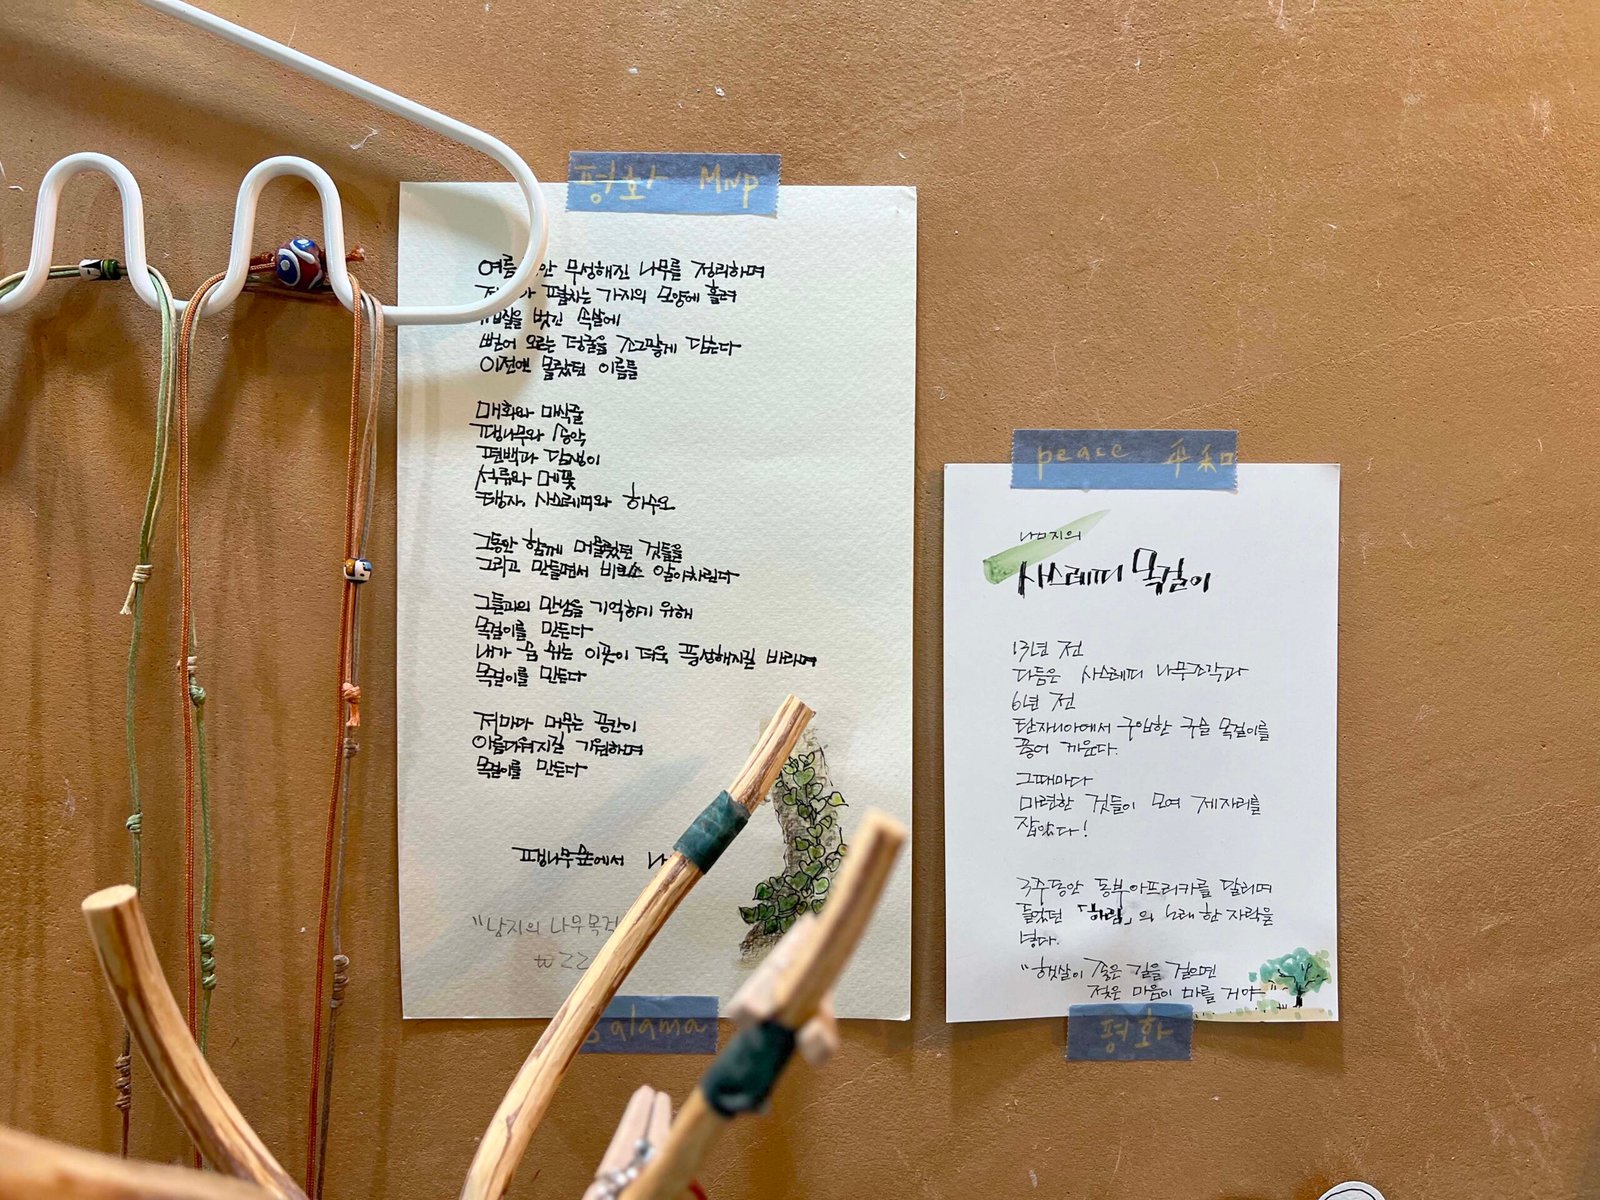 평화 MNP
여름 안 무성해진 나무를 정리하며
펼치는 가지의 모양에 홀려
벗긴 속살에
뻗어 오르는 덩굴을 조그맣게 담는다
이전엔 몰랐던 이름들
매화와 마삭줄
팽나무와 송악
편백과 담쟁이
석류와 메꽃
탱자, 사스레피와 하수오
그동안 함께 머물렀던 것들을
그리고 만들면서 비로소 알아차린다
그들과의 만남을 기억하기 위해
목걸이를 만든다
내가 숨 쉬는 이곳이 더욱 풍성해지길 바라며
목걸이를 만든다
저마다 머무는 공간이
아름다워지길 기원하며
목걸이를 만든다
팽나무숲에서
"남지의 나무목걸
salama
peace 平和
나무지의
사스레피 목걸이
13년 전
다듬은 사스레피 나무조각과
6년 전
탄자니아에서 구입한 구슬 목걸이를
풀어 끼운다.
그때마다
마련한 것들이 모여 제자리를
잡았다!
3주동안 동부아프리카를 달리며
들었던 「하림」의 노래 한 자락을
넣다.
"햇살이 좋은 길을 걸으면
젖은 마음이 마를 거야"
평화